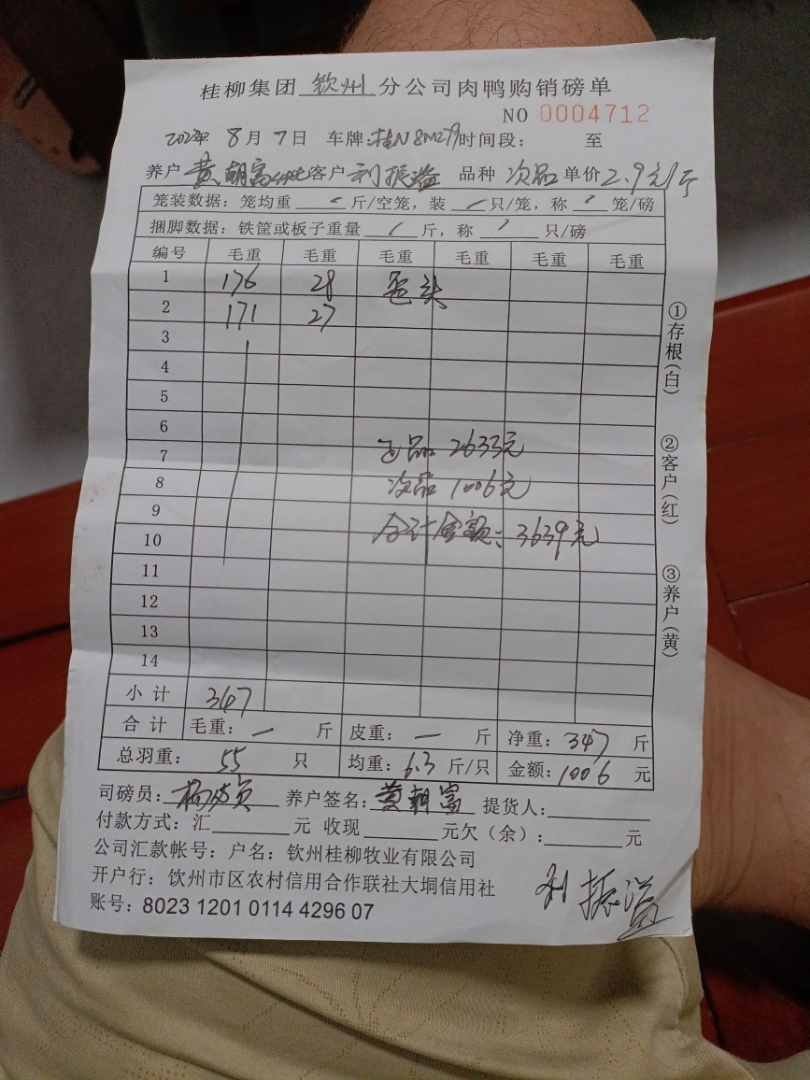 桂柳集团 钦州 分公司肉鸭购销磅单
NO 0004712
8月7日 车牌: 时间段: 至
养户 黄朝富 客户 利振溢 品种 次品 单价 2.9元/斤
笼装数据: 笼均重 斤/空笼, 装 只/笼, 称 笼/磅
捆脚数据: 铁筐或板子重量 斤, 称 只/磅
编号 毛重 毛重 毛重 毛重 毛重 毛重
1 176 28
2 171 27
3
4
5
6
7 2633元
8 次品 1006元
9
10 合计金额: 3639元
11
12
13
14
小计 347
合计 毛重: — 斤 皮重: — 斤 净重: 347 斤
总羽重: 55 只 均重: 6.3 斤/只 金额: 1006 元
司磅员: 养户签名: 黄朝富 提货人:
付款方式: 汇 元 收现 元欠(余): 元
公司汇款帐号: 户名: 钦州桂柳牧业有限公司
开户行: 钦州市区农村信用合作联社大垌信用社
账号: 8023 1201 0114 4296 07
利振溢
①存根(白)
②客户(红)
③养户(黄)